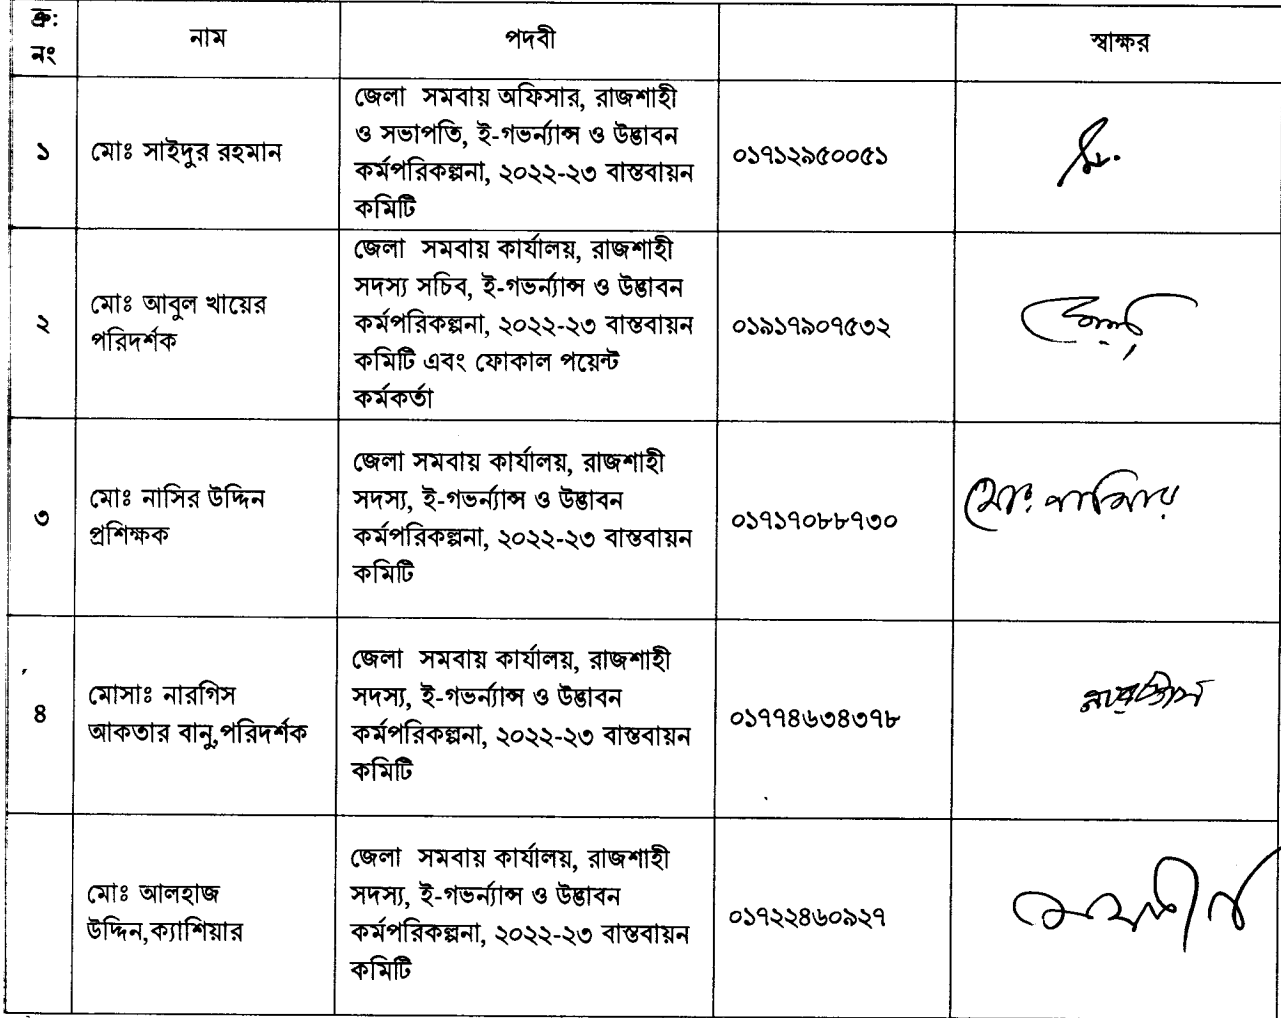 ক্র:
নং
নাম
পদবী
স্বাক্ষর
১
মোঃ সাইদুর রহমান
জেলা সমবায় অফিসার, রাজশাহী
ও সভাপতি, ই-গভর্ন্যান্স ও উদ্ভাবন
কর্মপরিকল্পনা, ২০২২-২৩ বাস্তবায়ন
কমিটি
০১৭১২৯৫০০৫১
২
মোঃ আবুল খায়ের
পরিদর্শক
জেলা সমবায় কার্যালয়, রাজশাহী
সদস্য সচিব, ই-গভর্ন্যান্স ও উদ্ভাবন
কর্মপরিকল্পনা, ২০২২-২৩ বাস্তবায়ন
কমিটি এবং ফোকাল পয়েন্ট
কর্মকর্তা
০১৯১৭৯০৭৫৩২
৩
মোঃ নাসির উদ্দিন
প্রশিক্ষক
জেলা সমবায় কার্যালয়, রাজশাহী
সদস্য, ই-গভর্ন্যান্স ও উদ্ভাবন
কর্মপরিকল্পনা, ২০২২-২৩ বাস্তবায়ন
কমিটি
০১৭১৭০৮৮৭৩০
মোঃ নাসির
৪
মোসাঃ নারগিস
আকতার বানু,পরিদর্শক
জেলা সমবায় কার্যালয়, রাজশাহী
সদস্য, ই-গভর্ন্যান্স ও উদ্ভাবন
কর্মপরিকল্পনা, ২০২২-২৩ বাস্তবায়ন
কমিটি
০১৭৭৪৬৩৪৩৭৮
মোঃ আলহাজ
উদ্দিন,ক্যাশিয়ার
জেলা সমবায় কার্যালয়, রাজশাহী
সদস্য, ই-গভর্ন্যান্স ও উদ্ভাবন
কর্মপরিকল্পনা, ২০২২-২৩ বাস্তবায়ন
কমিটি
০১৭২২৪৬০৯২৭